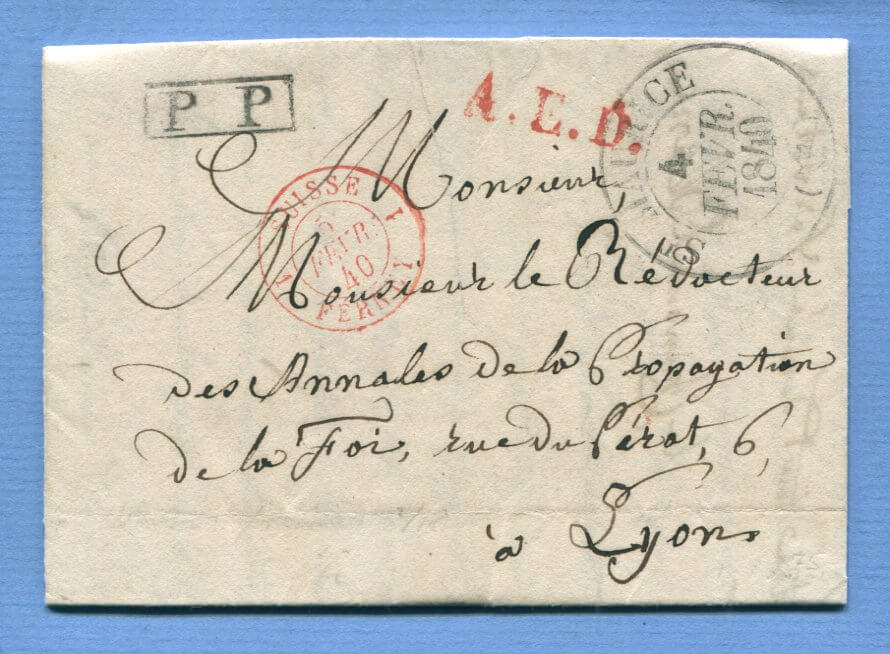 P P
A. E. D.
ST MAURICE
4
FEVR.
1840
SUISSE
5
FEVR.
40
FERNEY
1
Monsieur,
Monsieur le Rédacteur
des Annales de la Propagation
de la Foi, rue du Pérat, 6,
à Lyon